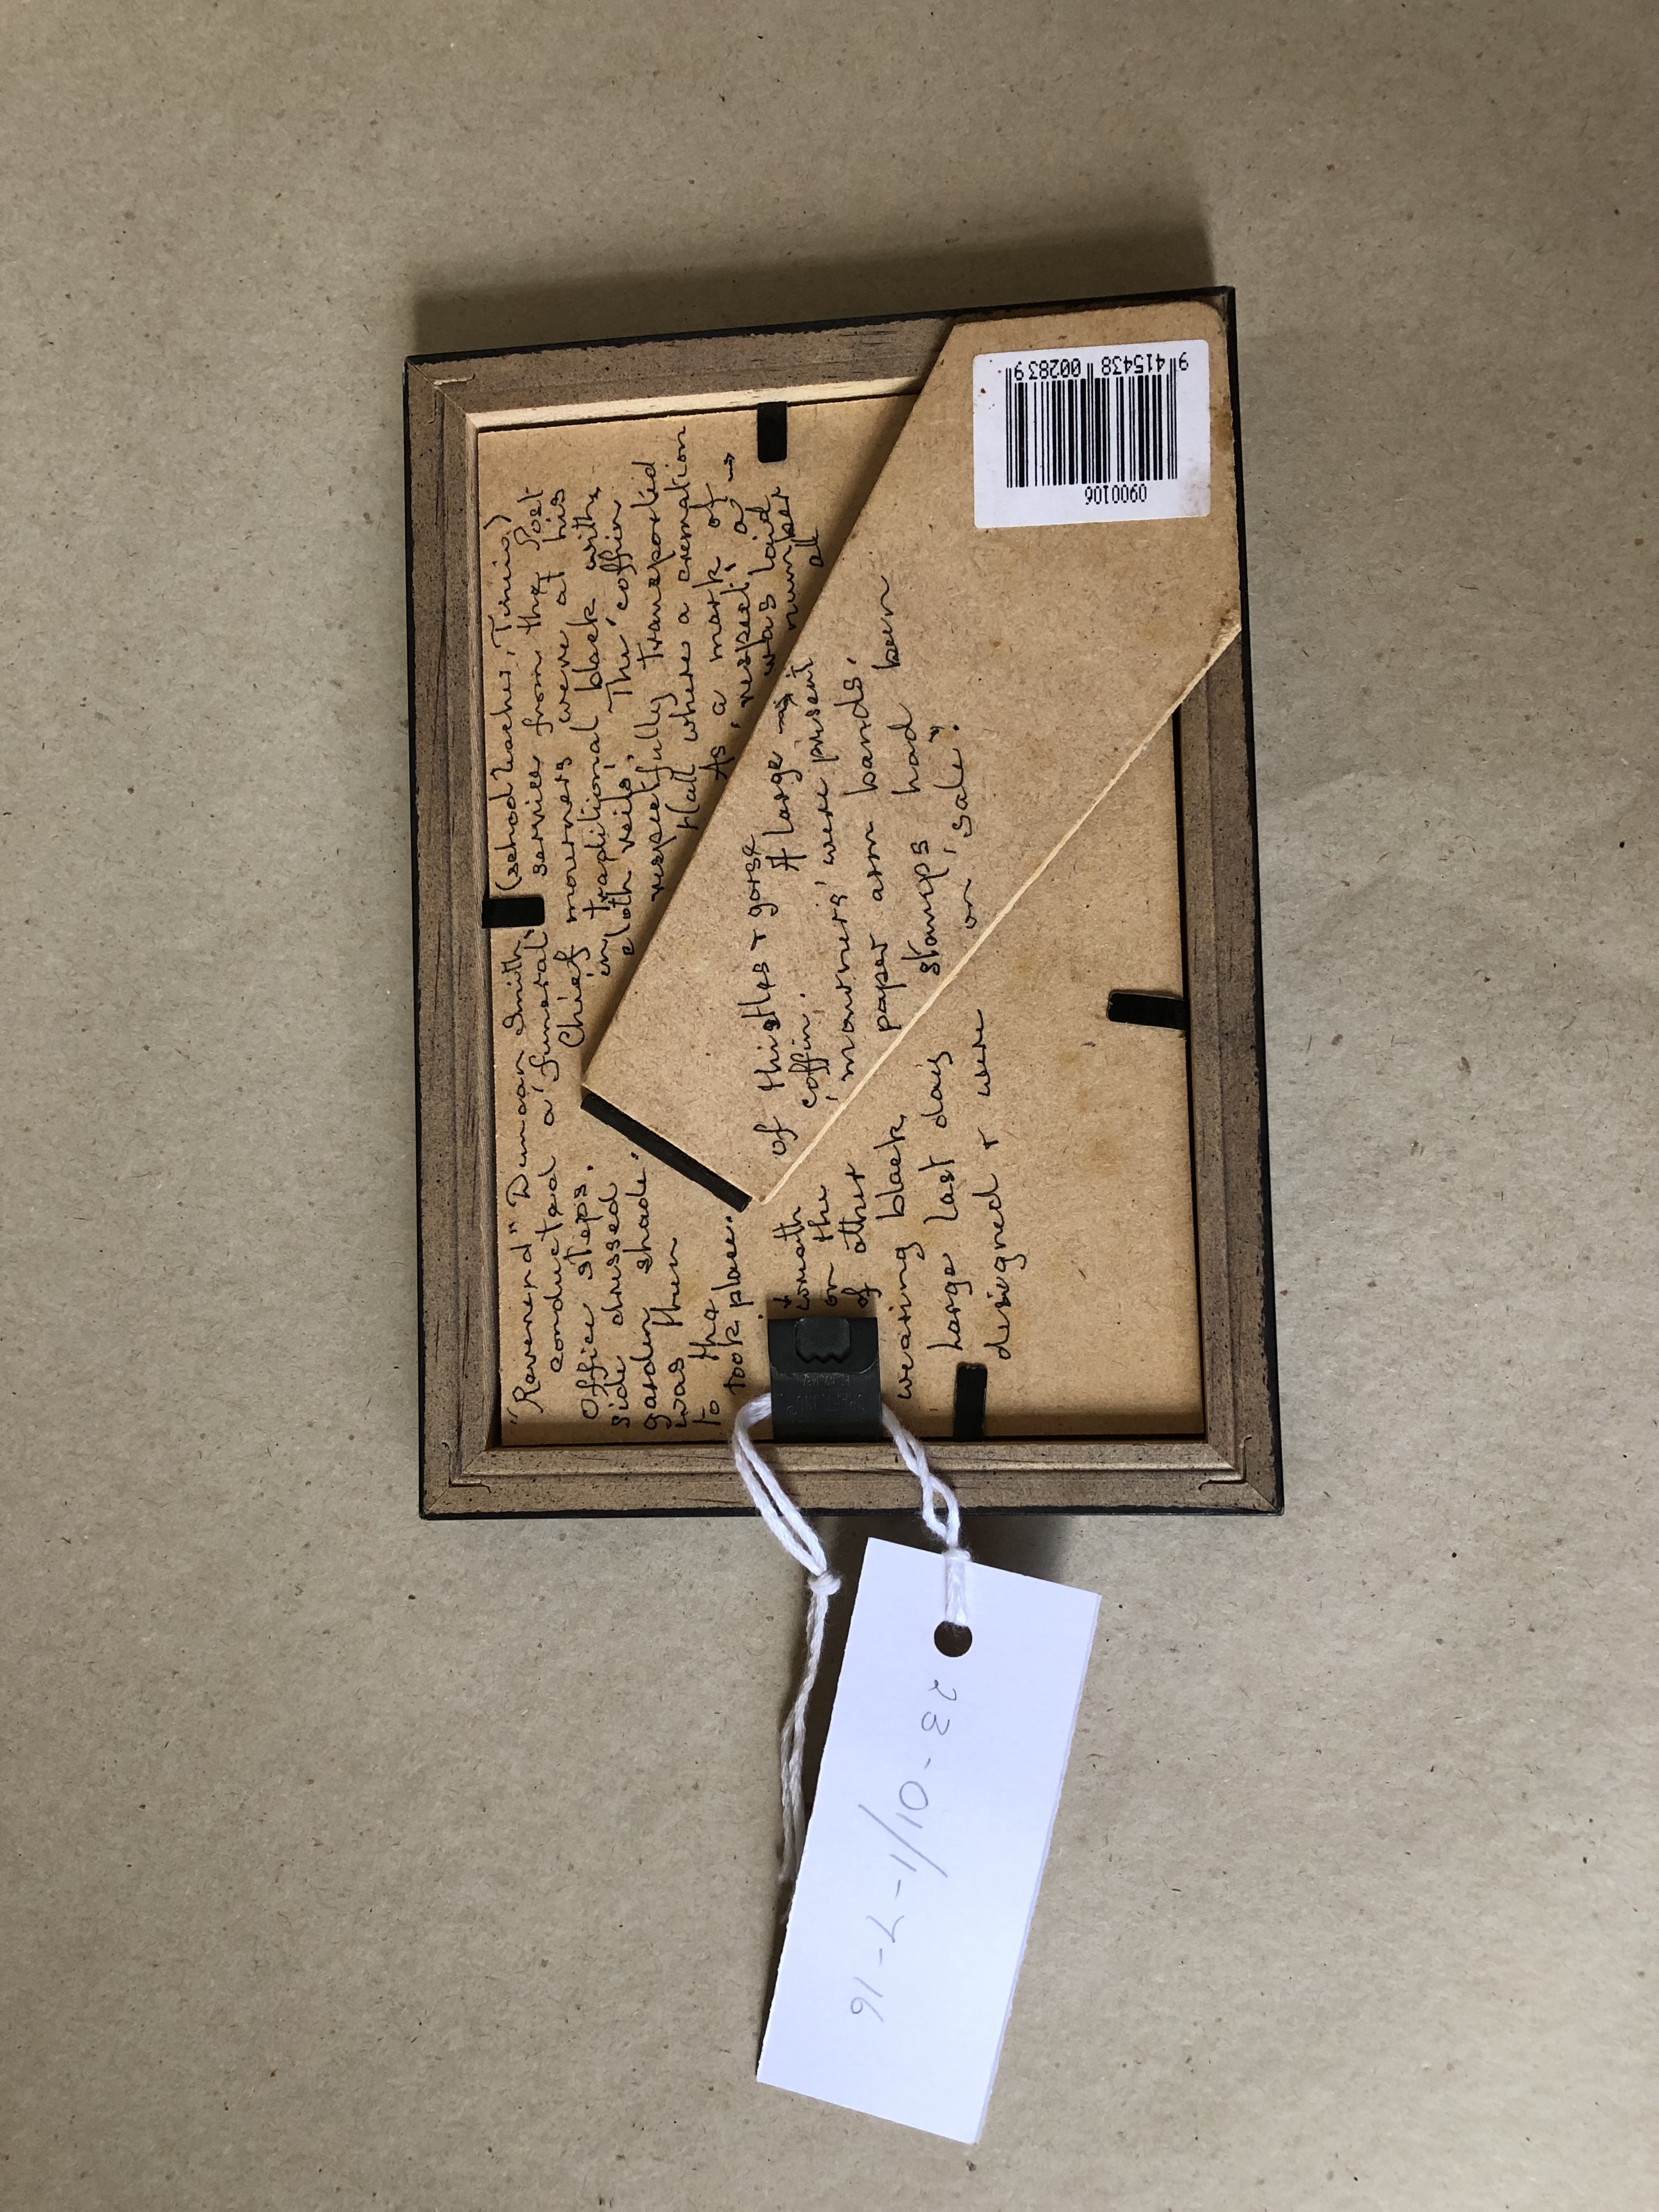 "Reverend" Duncan Smith (school teacher, Tiniroto)
conducted a 'funeral' service from the Post
Office steps. Chief mourners were at his
side dressed in traditional black with
garden shade cloth veils'. The 'coffin
was then respectfully transported
to the Hall where a cremation
took place. As a mark of
'respect' a →
wreath of thistles + gorse was laid
on the coffin. A large → number
of other 'mourners' were present all
wearing black paper arm bands.
Large last day stamps had been
designed + were on 'sale'.
23-01/1-7-16
0900106
9 415438 002839